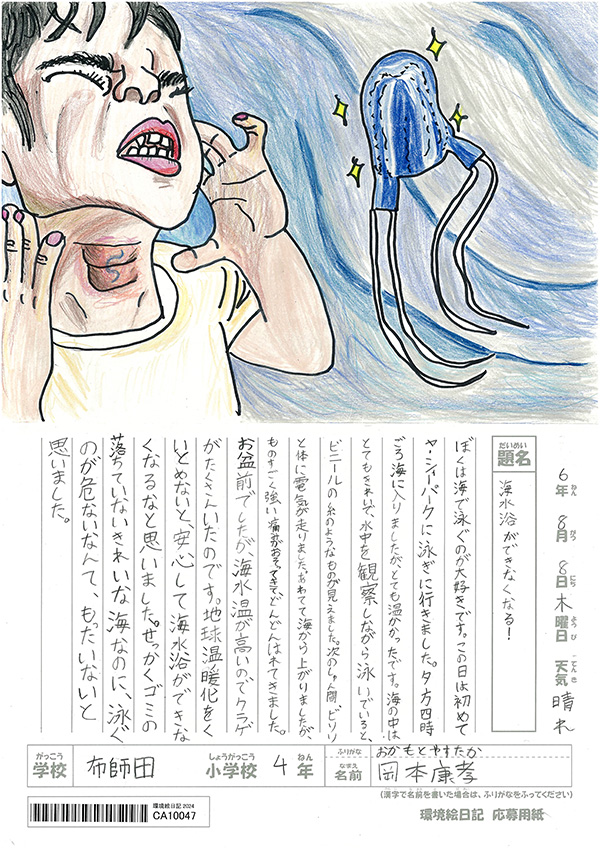 6年 8月 8日 木曜日 天気 晴れ
ねん がつ にち ようび てんき
だいめい
題名
海水浴ができなくなる!
ぼくは海で泳ぐのが大好きです。この日は初めて
ヤ・シィパークに泳ぎに行きました。夕方四時
ごろ海に入りましたが、とても温かかったです。海の中は
とてもきれいで、水中を観察しながら泳いでいると、
ビニールの糸のようなものが見えました。次のしゅん間、ビリリ
と体に電気が走りました。あわてて海から上がりましたが、
ものすごく強い痛みがおそってきて、どんどんはれてきました。
お盆前でしたが、海水温が高いのでクラゲ
がたくさんいたのです。地球温暖化をく
いとめないと、安心して海水浴ができな
くなるなと思いました。せっかくゴミの
落ちていないきれいな海なのに、泳ぐ
のが危ないなんて、もったいないと
思いました。
がっこう
学校 布師田
しょうがっこう ねん
小学校 4年
ふりがな おかもとやすたか
なまえ
名前 岡本康孝
(漢字で名前を書いた場合は、ふりがなをふってください)
環境絵日記 2024
CA10047
環境絵日記 応募用紙